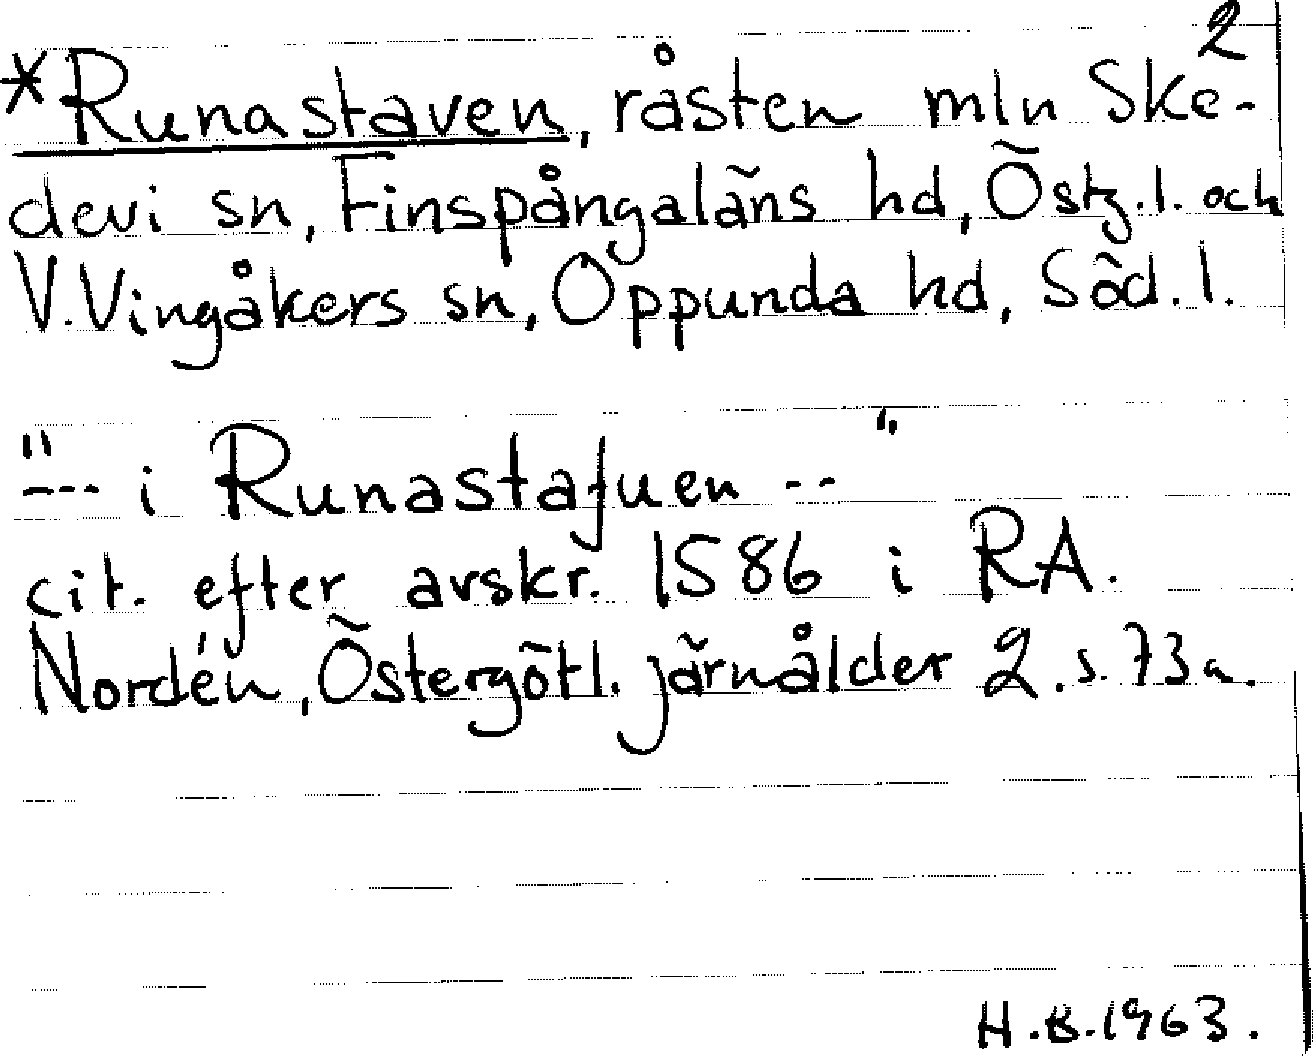 2
*Runastaven, råsten mln Ske-
devi sn, Finspångaläns hd, Östg.l. och
V.Vingåkers sn, Oppunda hd, Söd.l.
"--- i Runastafuen --"
cit. efter avskr. 1586 i RA.
Nordén, Östergötl. järnålder 2.s.73a.
H.B.1963.